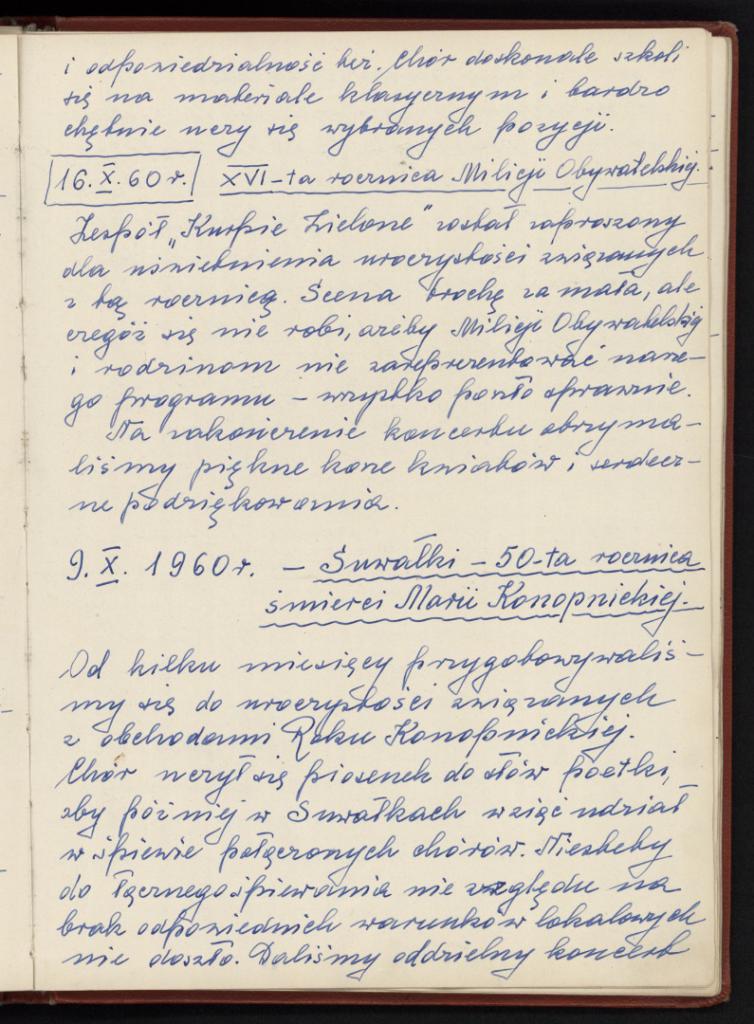 i odpowiedzialność też. Chór doskonale szkoli
się na materiale klasycznym i bardzo
chętnie uczy się wybranych pozycji.
16.X.60r. XVI-ta rocznica Milicji Obywatelskiej.
Zespół „Kurpie Zielone" został zaproszony
dla uświetnienia uroczystości związanych
z tą rocznicą. Scena trochę za mała, ale
czegóż się nie robi, ażeby Milicji Obywatelskiej
i rodzinom nie zareprezentować nasze-
go programu – wszystko poszło sprawnie.
Na zakończenie koncertu otrzyma-
liśmy piękne kosze kwiatów i serdecz-
ne podziękowania.
9.X.1960r. – Suwałki – 50-ta rocznica
śmierci Marii Konopnickiej.
Od kilku miesięcy przygotowywaliś-
my się do uroczystości związanych
z obchodami Roku Konopnickiej.
Chór uczył się piosenek do słów poetki,
aby później w Suwałkach wziąć udział
w śpiewie połączonych chórów. Niestety
do łącznego śpiewania nie względu na
brak odpowiednich warunków lokalowych
nie doszło. Daliśmy oddzielny koncert